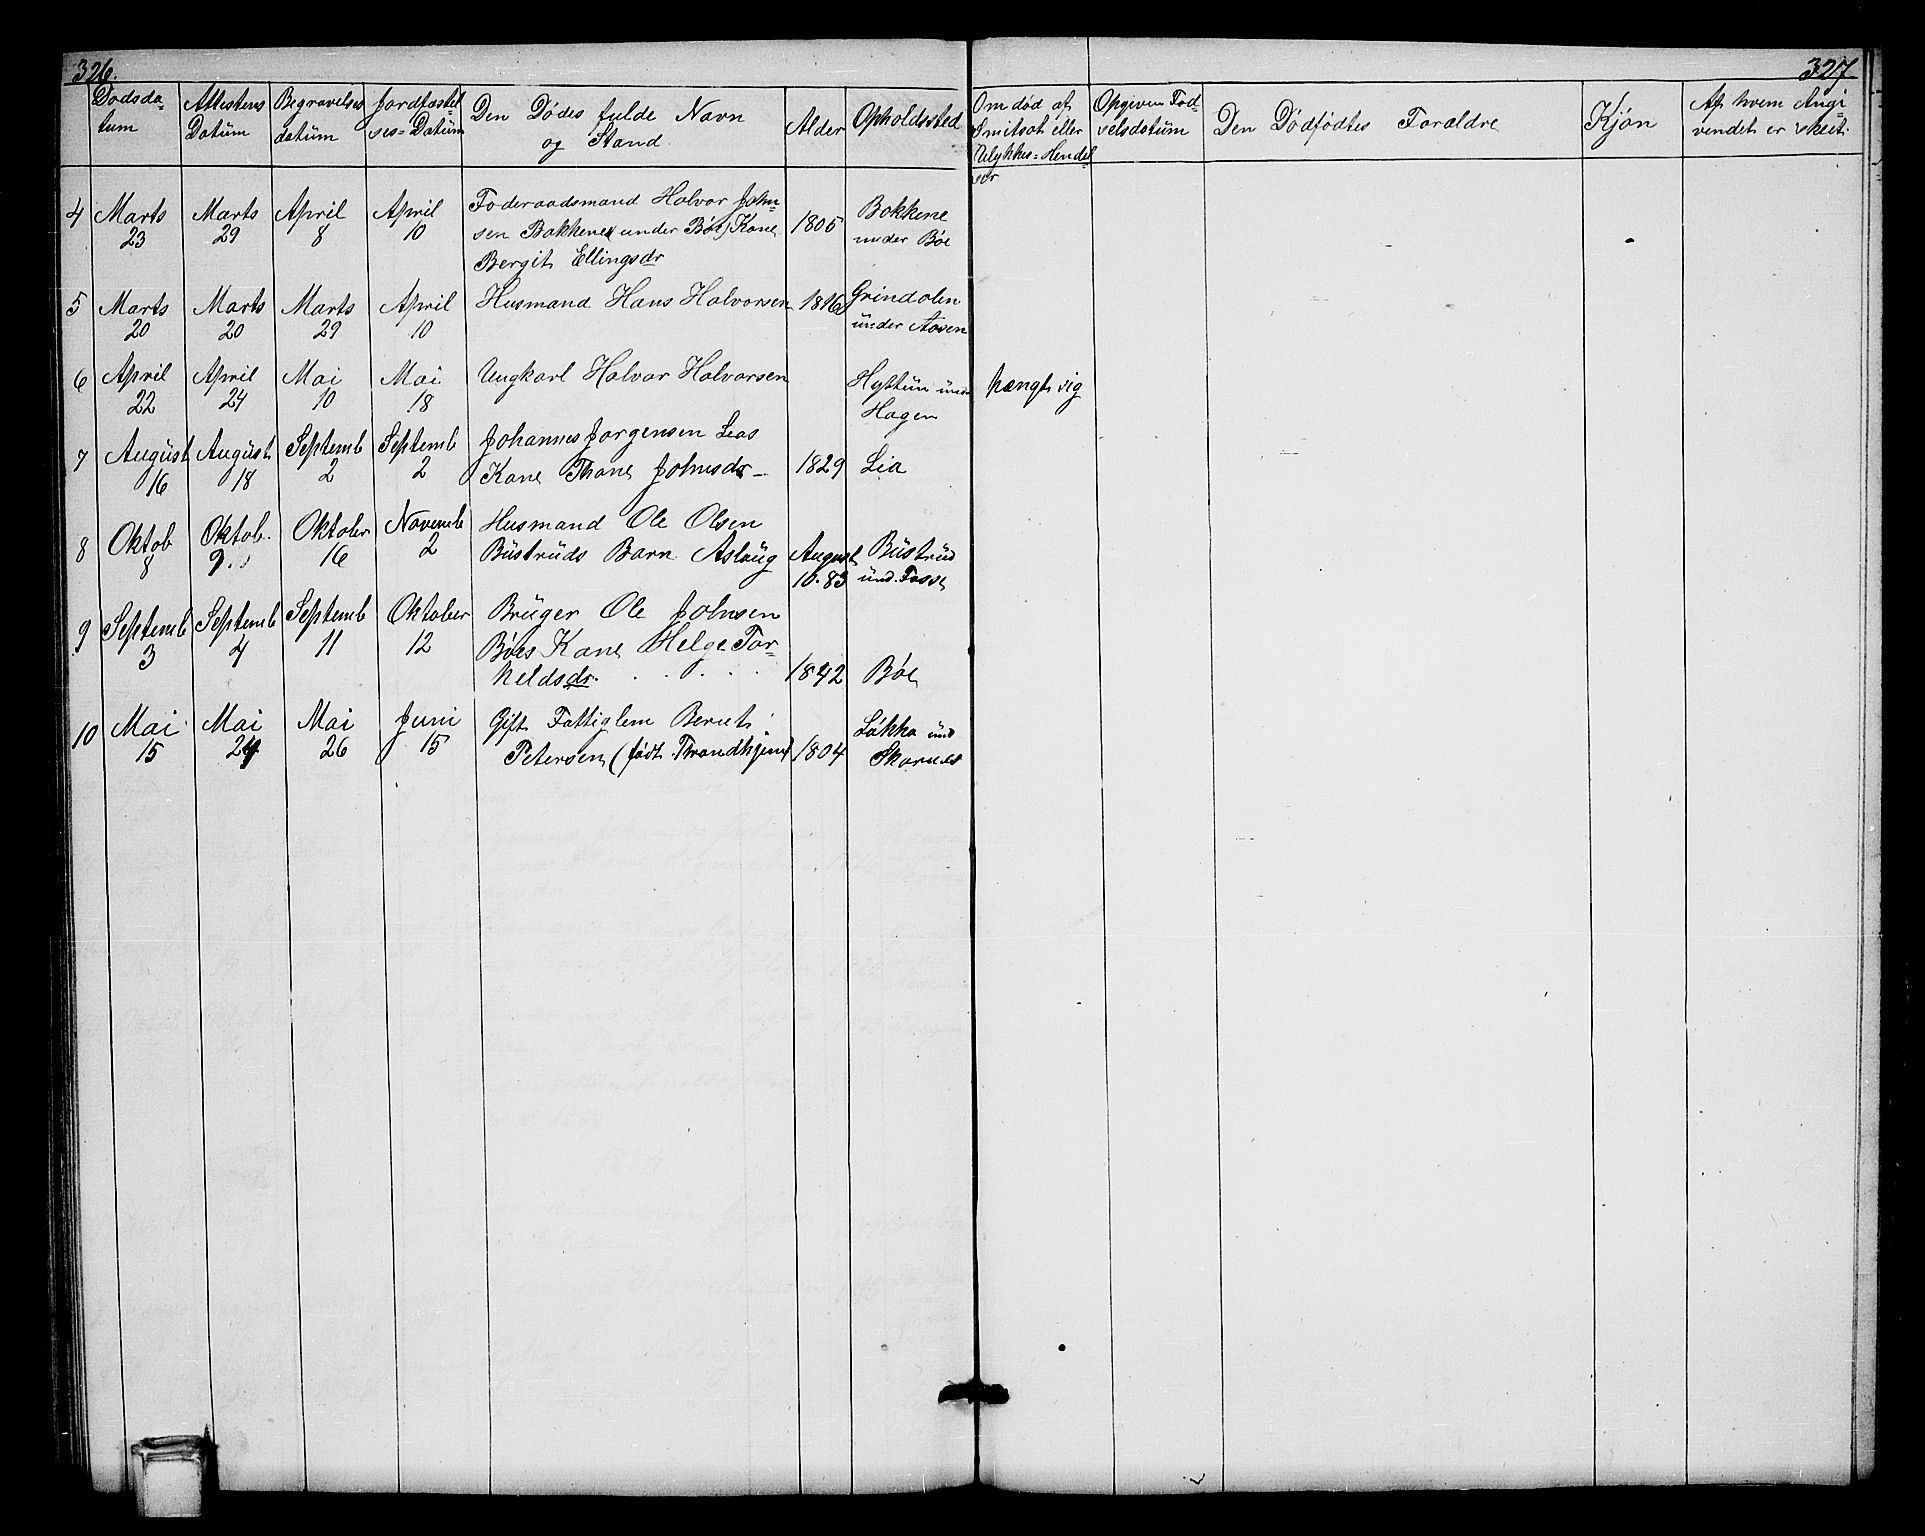 326.
327
Dødsda=
tum
Attestens
Datum
Begravelses
datum
Jordfæstel=
ses=Datum
Den Dødes fulde Navn
og Stand.
Alder
Opholdssted
Om død af
Smitsot eller
Ulykkes=Hendel
ser
Opgiven Fød=
selsdatum
Den Dødfødtes Forældre
Kjøn
Af hvem Angi=
vendet er skeet.
4 Marts 23 Marts 29 April 8 April 10 Føderaadsmand Halvor John=
sen Bakkene (under Bøe) Kone 1805 Bakkene
Bergit Ellingsdr under Bøe
5 Marts 20 Marts 20 Marts 29 April 10 Husmand Hans Halvorsen 1816 Grindolen
under Aasen
6 April 22 April 24 Mai 10 Mai 18 Ungkarl Halvor Halvorsen Hyttün und hængt sig
Hagen
7 August 16 August 18 Septemb 2 Septemb 2 Johannes Jorgensen Lias
Kone Thone Johnsdr 1829 Lia
8 Oktob 8 Oktob. 9. Oktober 16 Novemb 2 Husmand Ole Olsen
Büstrüds Barn Aslaug August 10.83 Büstrüd
und. Fosse
9 Septemb 3 Septemb 4 Septemb 11 Oktober 12 Brüger Ole Johnsen
Bøes Kone Helge Tor=
keldsdr. . . . . 1842 Bøe
10 Mai 15 Mai 24 Mai 26 Juni 15 Gift Fattiglem Berut
Petersen (født Throndhjem) 1804 Løkka und
Skarnes